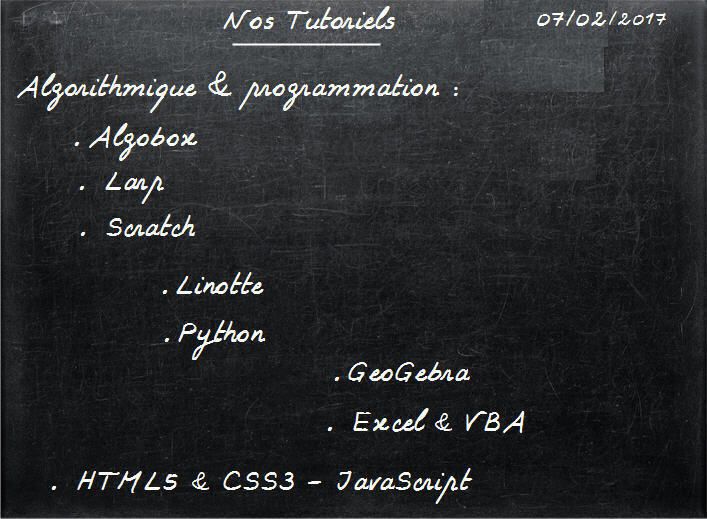 Nos Tutoriels 07/02/2017
Algorithmique & programmation :
. Algobox
. Larp
. Scratch
. Linotte
. Python
. GeoGebra
. Excel & VBA
. HTML5 & CSS3 - JavaScript